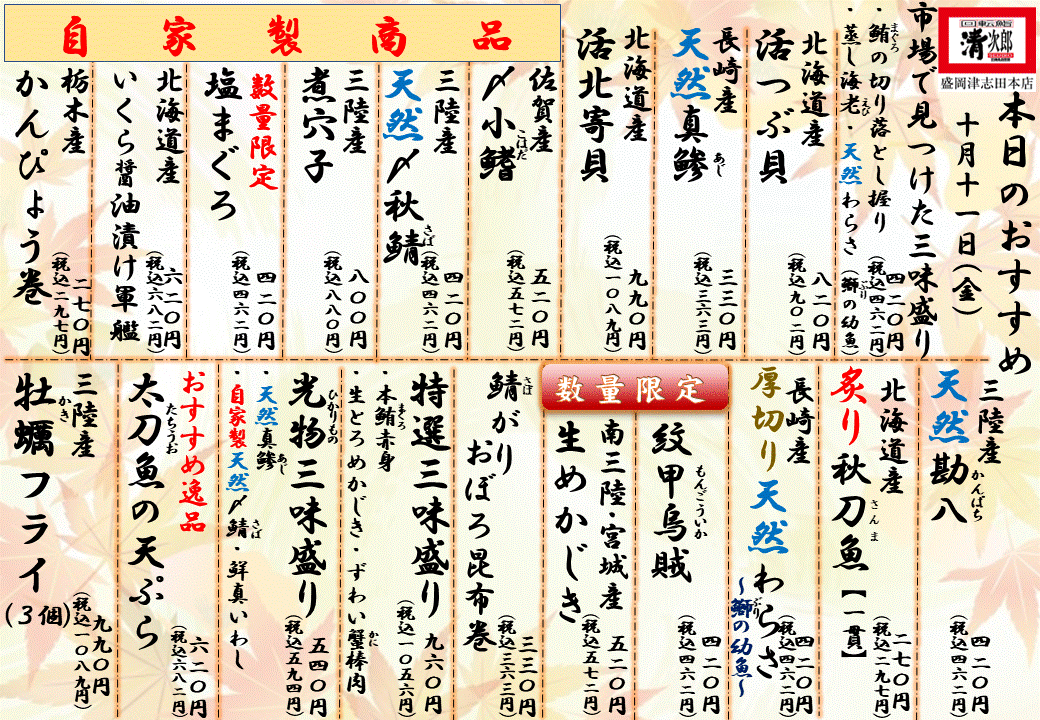 回転鮨
清次郎
盛岡津志田本店
本日のおすすめ
十月十一日(金)
市場で見つけた三味盛り
・鮪の切り落とし握り
まぐろ
・蒸し海老・天然わらさ(鰤の幼魚)
えび
ぶり
四二〇円
(税込四六二円)
北海道産
活つぶ貝
八二〇円
(税込九〇二円)
長崎産
天然真鯵
あじ
三三〇円
(税込三六三円)
北海道産
活北寄貝
九九〇円
(税込一〇八九円)
自家製商品
佐賀産
〆小鰭
こはだ
五二〇円
(税込五七二円)
三陸産
天然〆秋鯖
さば
四二〇円
(税込四六二円)
三陸産
煮穴子
八〇〇円
(税込八八〇円)
数量限定
塩まぐろ
四二〇円
(税込四六二円)
北海道産
いくら醤油漬け軍艦
六二〇円
(税込六八二円)
栃木産
かんぴょう巻
二七〇円
(税込二九七円)
三陸産
天然勘八
かんぱち
四二〇円
(税込四六二円)
北海道産
炙り秋刀魚【一貫】
さんま
二七〇円
(税込二九七円)
長崎産
厚切り天然わらさ
~鰤の幼魚~
ぶり
四二〇円
(税込四六二円)
数量限定
紋甲烏賊
もんごういか
四二〇円
(税込四六二円)
南三陸・宮城産
生めかじき
五二〇円
(税込五七二円)
鯖がり
さば
おぼろ昆布巻
三三〇円
(税込三六三円)
特選三味盛り
・本鮪赤身
まぐろ
・生とろめかじき・ずわい蟹棒肉
かに
九六〇円
(税込一〇五六円)
光物三味盛り
ひかりもの
・天然真鯵
あじ
・自家製天然〆鯖・鮮真いわし
さば
五四〇円
(税込五九四円)
おすすめ逸品
太刀魚の天ぷら
たちうお
六二〇円
(税込六八二円)
三陸産
牡蠣フライ(3個)
かき
九九〇円
(税込一〇八九円)